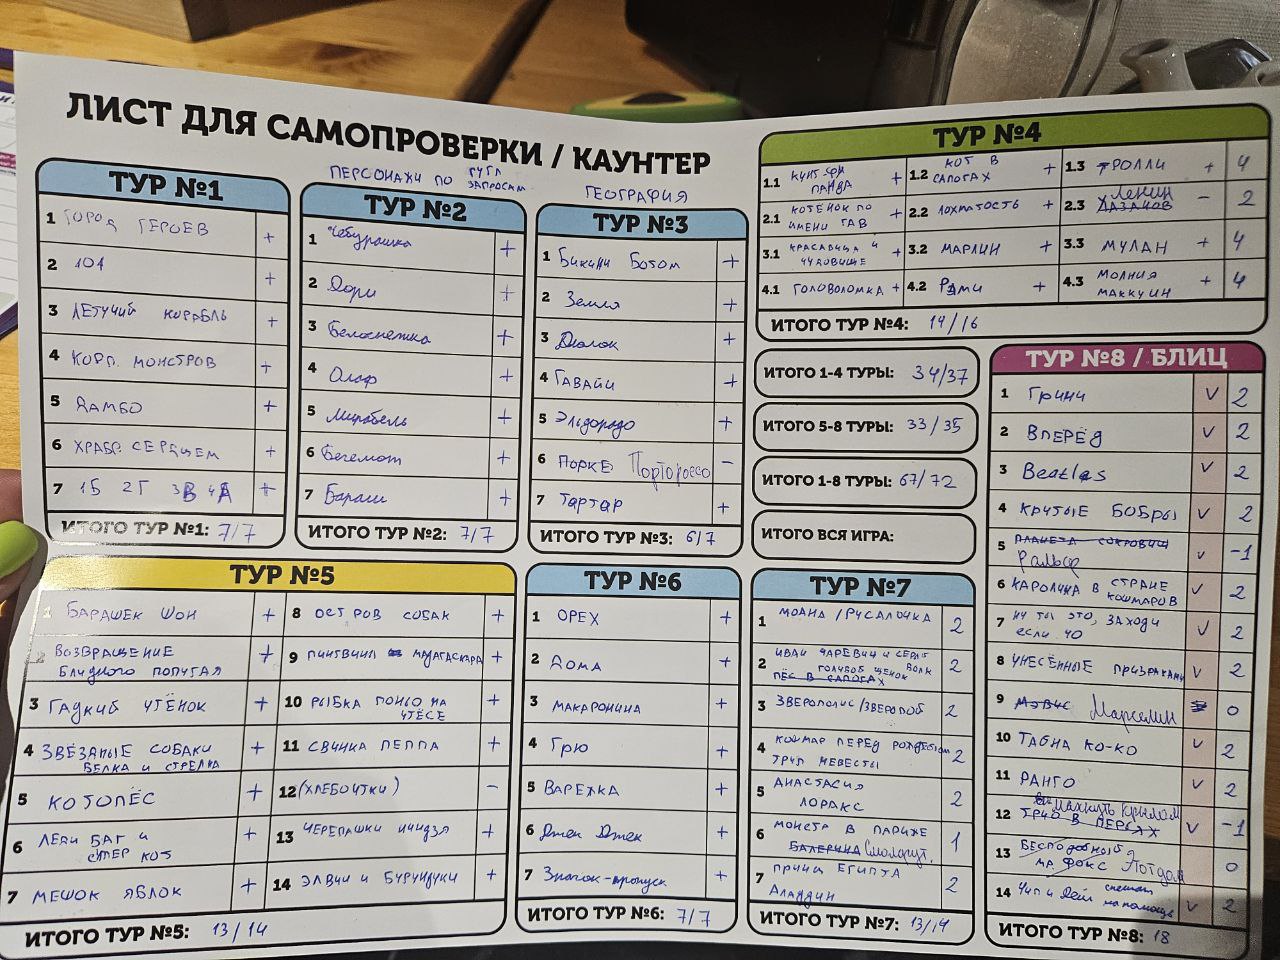 ЛИСТ ДЛЯ САМОПРОВЕРКИ / КАУНТЕР
ТУР №1
1 ГОРОД ГЕРОЕВ +
2 101 +
3 ЛЕТУЧИЙ КОРАБЛЬ +
4 КОРП. МОНСТРОВ +
5 ДАМБО +
6 ХРАБР. СЕРДЦЕМ +
7 1Б 2Г 3В 4А +
ИТОГО ТУР №1: 7/7
ПЕРСОНАЖИ ПО ГУГЛ
ЗАПРОСАМ
ТУР №2
1 Чебурашка +
2 Дори +
3 Белоснежка +
4 Олаф +
5 Мирабель +
6 Бегемот +
7 Бараш +
ИТОГО ТУР №2: 7/7
ГЕОГРАФИЯ
ТУР №3
1 Бикини Ботом +
2 Земля +
3 Диалок +
4 ГАВАЙИ +
5 Эльдорадо +
6 ПОРКЕ Портороссо -
7 Тартар +
ИТОГО ТУР №3: 6/7
ТУР №4
1.1 КУНГ-ФУ
ПАНДА +
1.2 КОТ В
САПОГАХ +
1.3 ТРОЛЛИ + 4
2.1 КОТЁНОК ПО
ИМЕНИ ГАВ +
2.2 ЛОХМАТОСТЬ +
2.3 Ленин
- 2
3.1 КРАСАВИЦА И
ЧУДОВИЩЕ +
3.2 МАРЛИН +
3.3 МУЛАН + 4
4.1 ГОЛОВОЛОМКА +
4.2 РЭМИ +
4.3 МОЛНИЯ
МАККУИН + 4
ИТОГО ТУР №4: 14/16
ИТОГО 1-4 ТУРЫ: 34/37
ИТОГО 5-8 ТУРЫ: 33/35
ИТОГО 1-8 ТУРЫ: 67/72
ИТОГО ВСЯ ИГРА:
ТУР №5
1 БАРАШЕК ШОН +
2 ВОЗВРАЩЕНИЕ
БЛУДНОГО ПОПУГАЯ +
3 ГАДКИЙ УТЁНОК +
4 ЗВЁЗДНЫЕ СОБАКИ
БЕЛКА И СТРЕЛКА +
5 КОТОПЁС +
6 ЛЕДИ БАГ И
СУПЕР КОТ +
7 МЕШОК ЯБЛОК +
8 ОСТРОВ СОБАК +
9 ПИНГВИНЫ МАДАГАСКАРА +
10 РЫБКА ПОНЬО НА
УТЁСЕ +
11 СВИНКА ПЕППА +
12 (ХЛЕБОУТКИ) -
13 ЧЕРЕПАШКИ НИНДЗЯ +
14 ЭЛВИН И БУРУНДУКИ +
ИТОГО ТУР №5: 13/14
ТУР №6
1 ОРЕХ +
2 ДОМА +
3 МАКАРОНИНА +
4 ГРЮ +
5 ВАРЕЖКА +
6 Джек Джек +
7 Значок-пропуск +
ИТОГО ТУР №6: 7/7
ТУР №7
1 МОАНА / РУСАЛОЧКА 2
2 ИВАН ЦАРЕВИЧ И СЕРЫЙ
ГОЛУБОЙ ЩЕНОК ВОЛК
ПЁС В САПОГАХ 2
3 ЗВЕРОПОЛИС/ЗВЕРОПОЙ 2
4 КОШМАР ПЕРЕД РОЖДЕСТВОМ
ТРУП НЕВЕСТЫ 2
5 АНАСТАСИЯ
ЛОРАКС 2
6 МОНСТР В ПАРИЖЕ
БАЛЕРИНА Смолфут. 1
7 ПРИНЦ ЕГИПТА
Аладдин 2
ИТОГО ТУР №7: 13/14
ТУР №8 / БЛИЦ
1 Гринч V 2
2 ВПЕРЁД V 2
3 Beatles V 2
4 КРУТЫЕ БОБРЫ V 2
5 ПЛАНЕТА СОКРОВИЩ
Ральф V -1
6 КАРОЛИНА В СТРАНЕ
КОШМАРОВ V 2
7 НУ ТЫ ЭТО, ЗАХОДИ
ЕСЛИ ЧО V 2
8 УНЕСЁННЫЕ ПРИЗРАКАМИ V 2
9 МЭВИС Марселин 0
10 ТАЙНА КО-КО V 2
11 РАНГО V 2
12 махнуть крылом
ТРИО В ПЕРЬЯХ V -1
13 БЕСПОДОБНЫЙ
МР. ФОКС 0
14 Чип и Дейл спешат
на помощь V 2
ИТОГО ТУР №8: 18